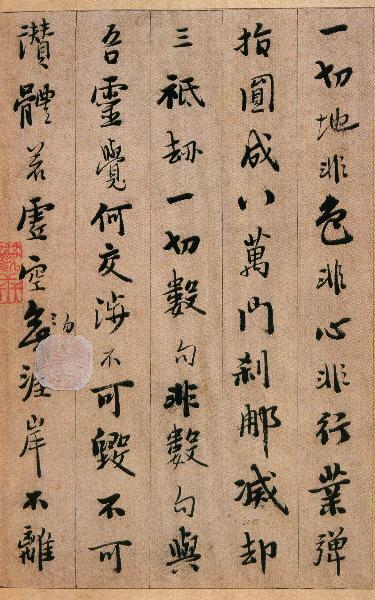 一切地非色非心非行業彈
指圓成八萬門刹那滅却
三祇劫一切數句非數句與
吾靈覺何交涉不可毀不可
讃體若虛空勿涯岸不離